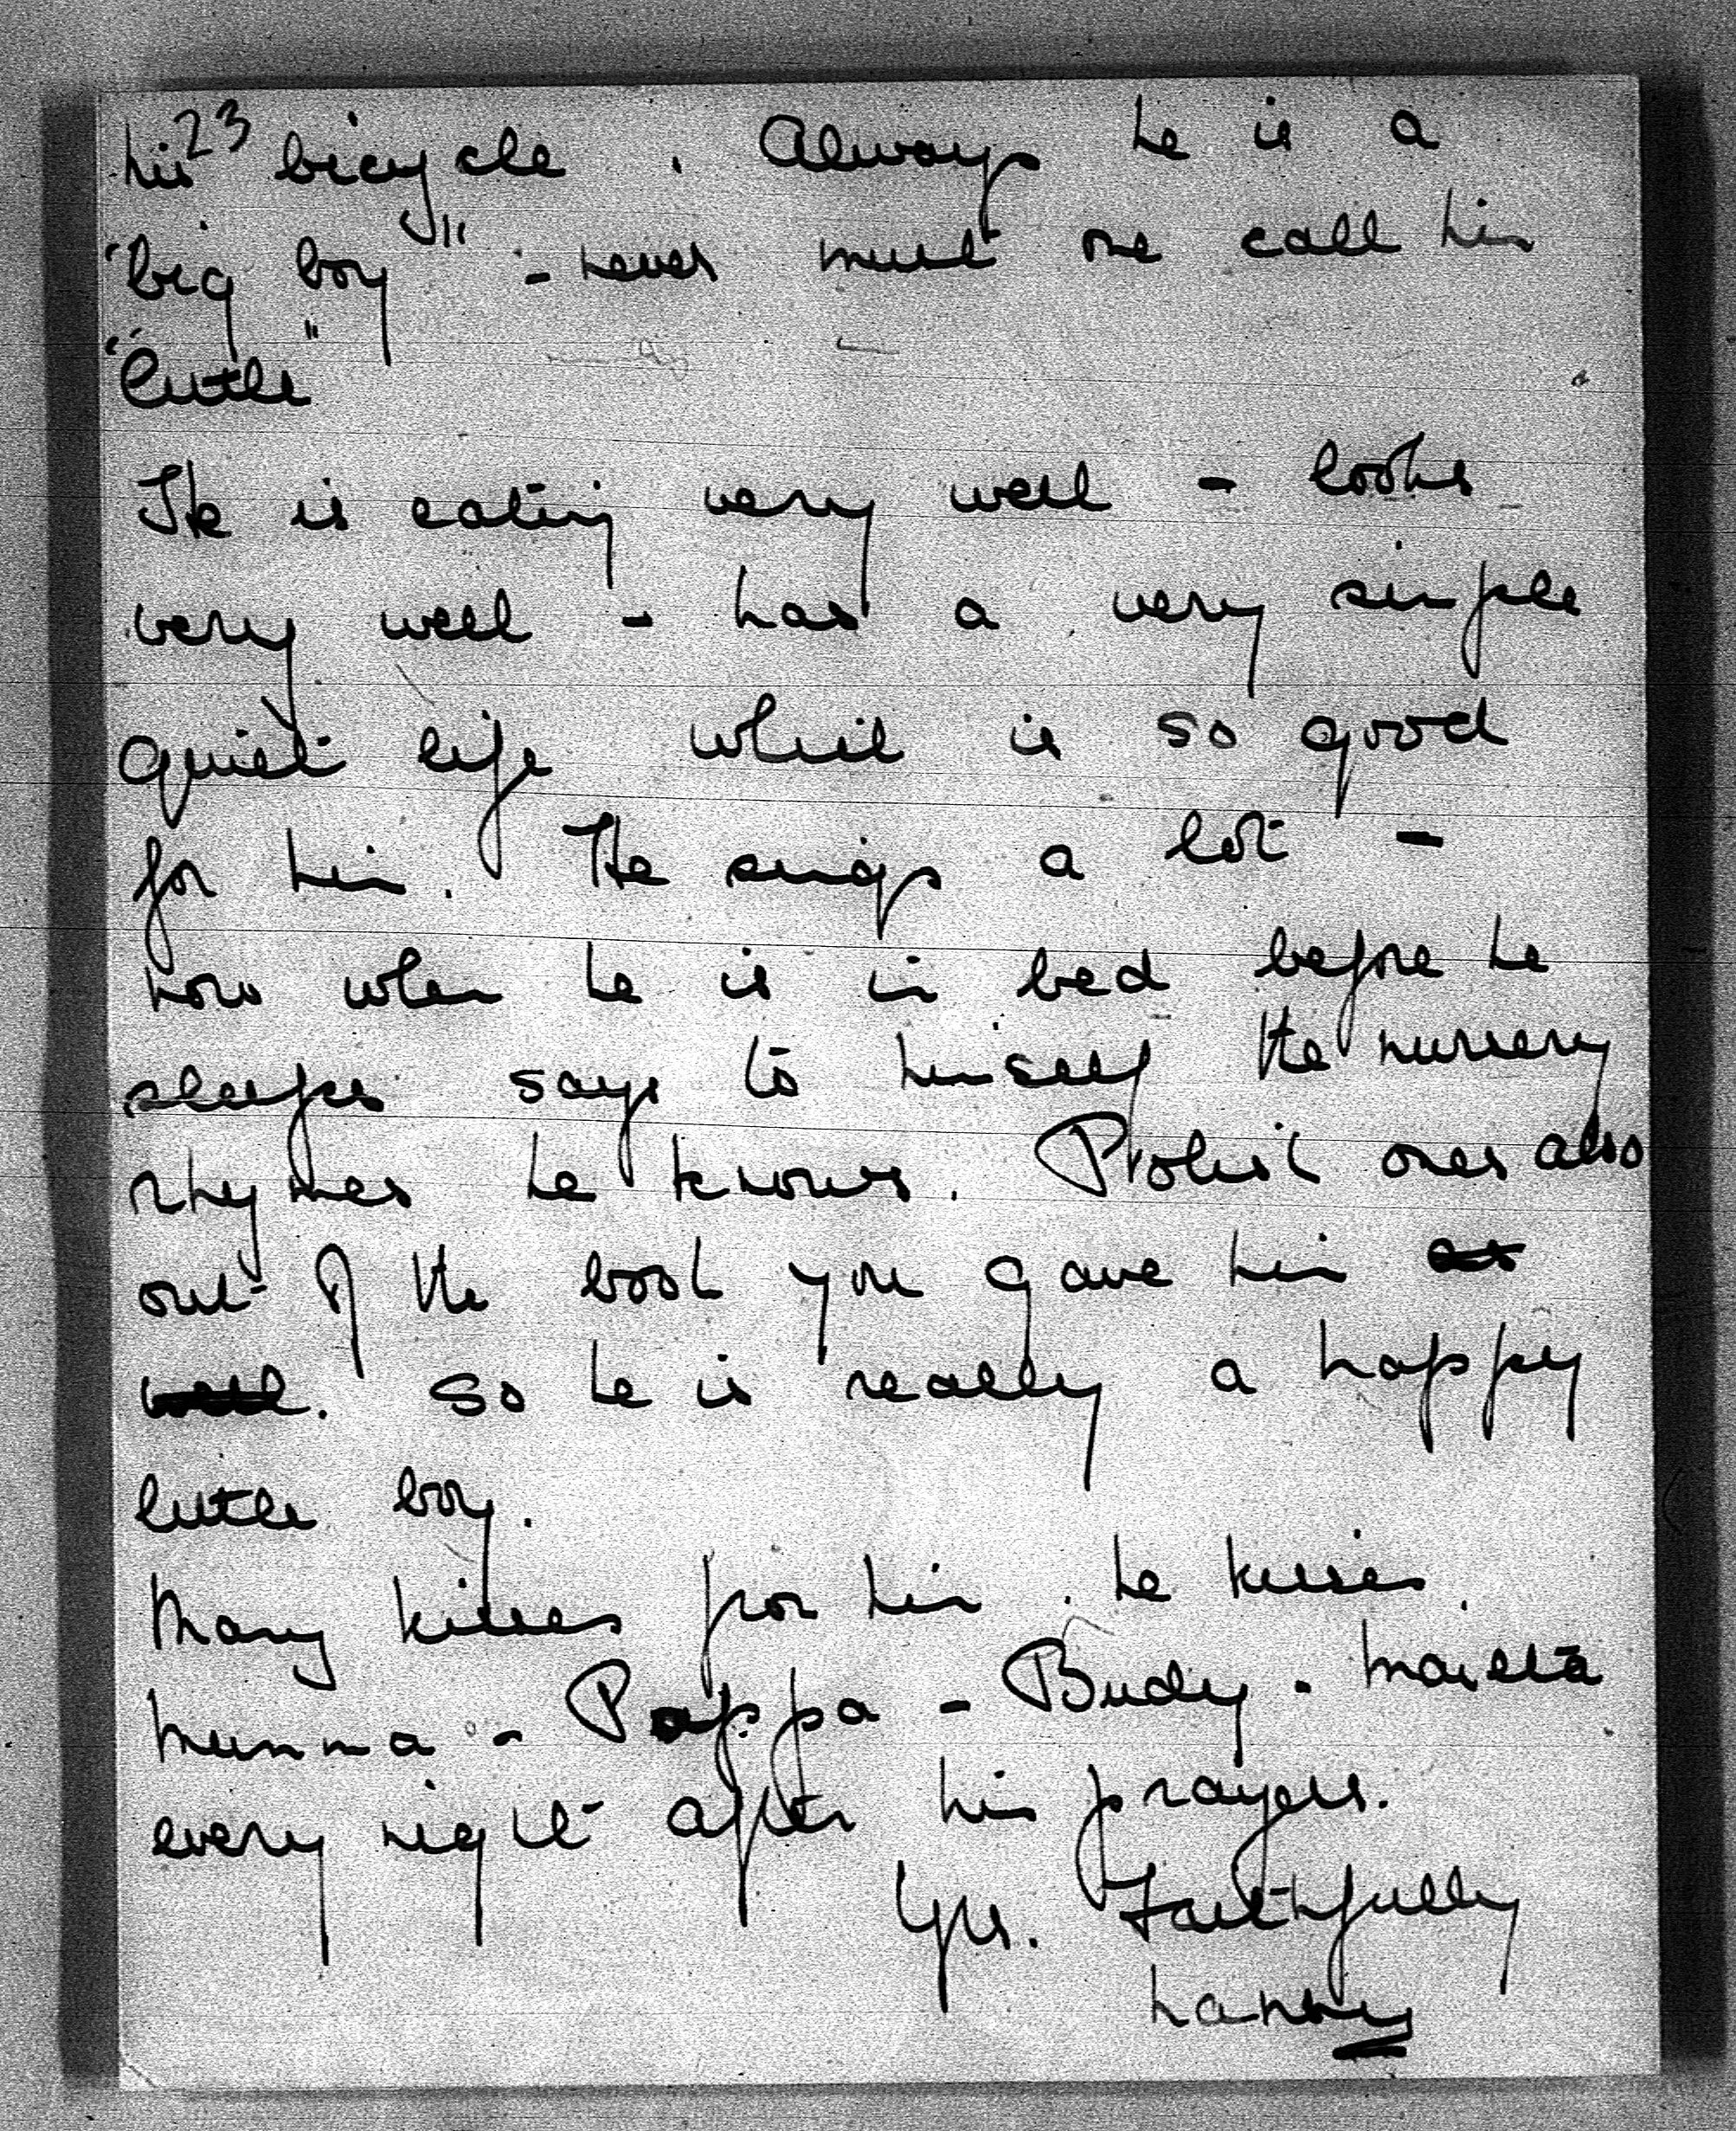 23
his bicycle. Always he is a
"big boy" - never must one call him
"little"
He is eating very well - looks
very well - has a very simple
quiet life which is so good
for him. He sings a lot -
now when he is in bed before he
sleeps says to himself the nursery
rhymes he knows. Polish ones also
out of the book you gave him as
well. So he is really a happy
little boy.
Many kisses from him. he kisses
Mumma - Pappa - Budy.
every night after his prayers.
Yrs. Faithfully
Nanny